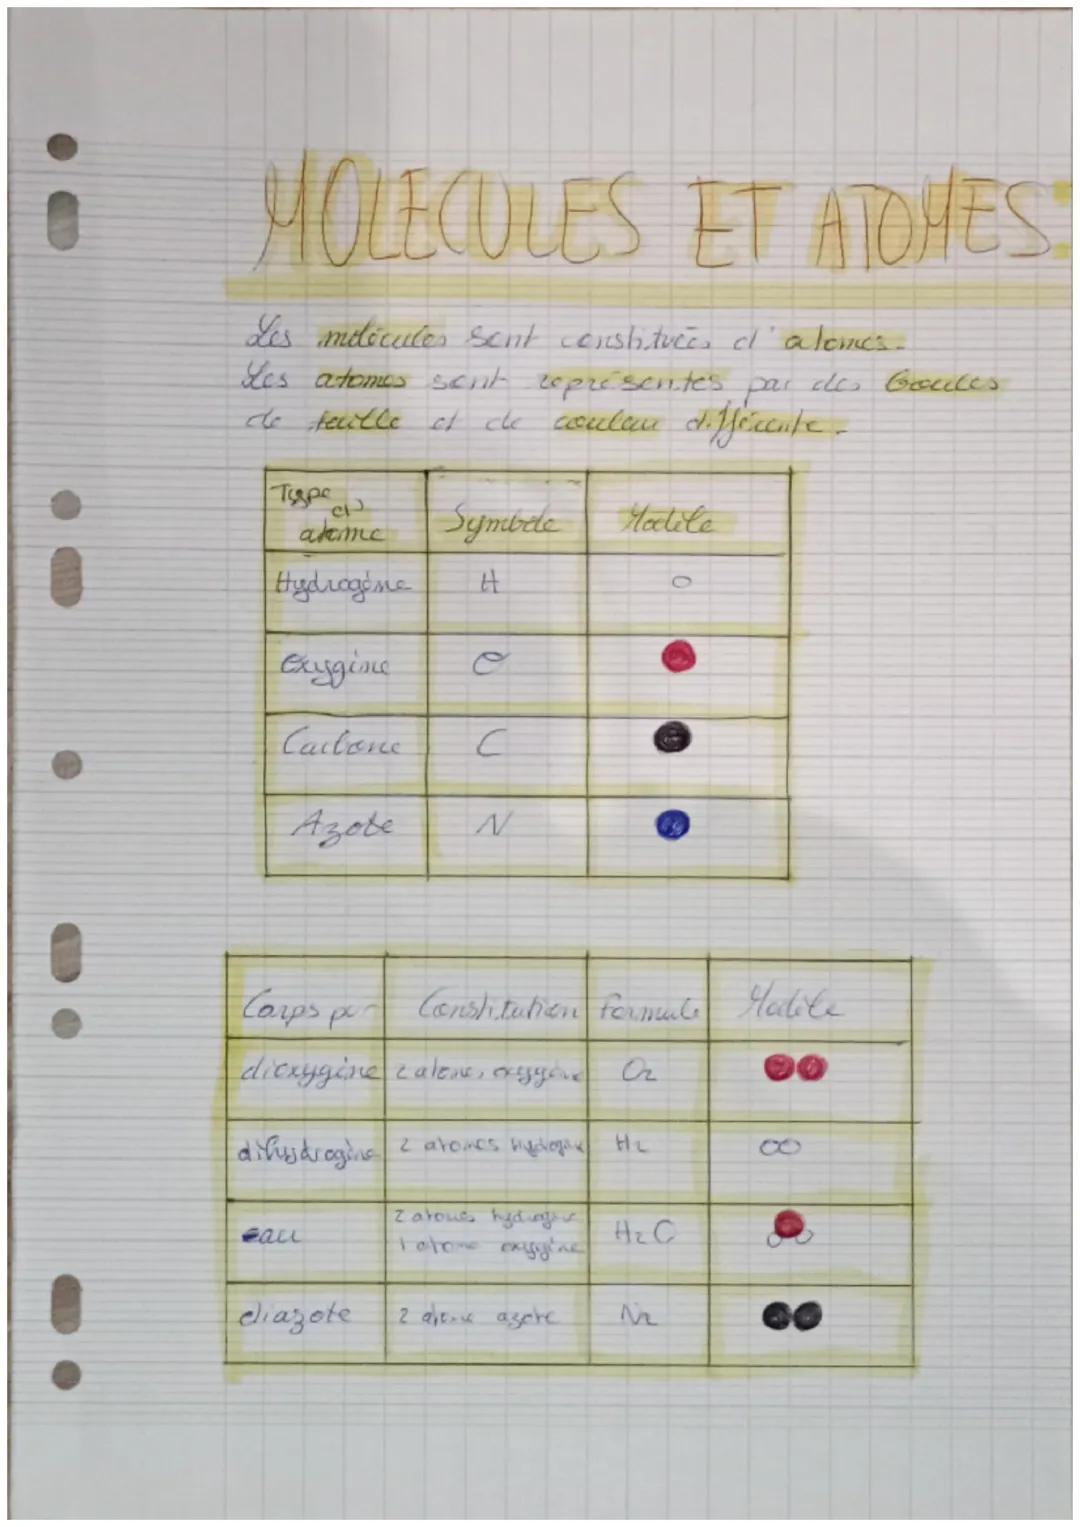 MOLECULES ET ATOMES:
Les molécules sont constituées d'atomes.
Les atomes sont représentés par des boules
de taille et de couleur différente.
Type d' atome Symbole Modèle
Hydrogène H
Oxygène O
Carbone C
Azote N
Corps pur Constitution formule Modèle
dioxygène 2 atomes oxygène O2
dihydrogène 2 atomes hydrogène H2
eau 2 atomes hydrogène 1 atome oxygène H2O
diazote 2 atome azote N2